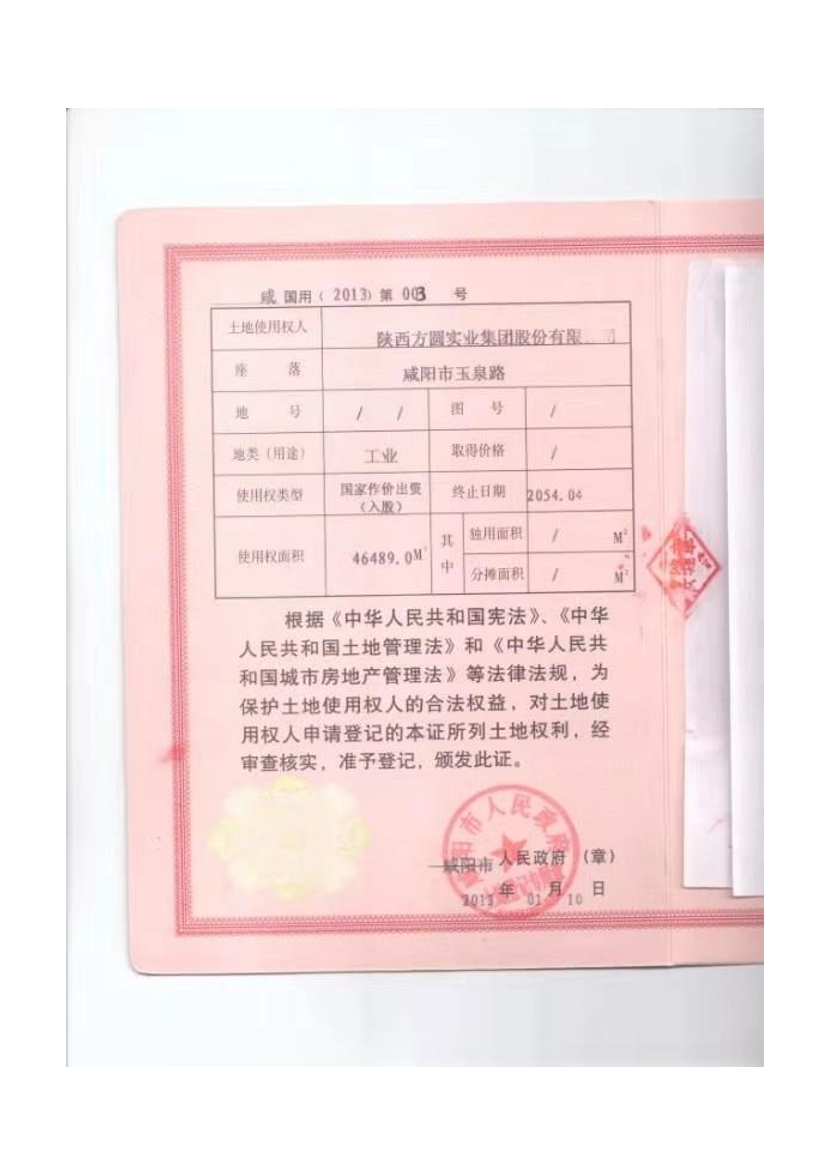 咸 国用（ 2013）第 003 号
土地使用权人 陕西方圆实业集团股份有限 司
座 落 咸阳市玉泉路
地 号 / / 图 号 /
地类（用途） 工业 取得价格 /
使用权类型 国家作价出资（入股） 终止日期 2054.04
使用权面积 46489.0M² 其中 独用面积 / M²
分摊面积 / M²
根据《中华人民共和国宪法》、《中华
人民共和国土地管理法》和《中华人民共
和国城市房地产管理法》等法律法规，为
保护土地使用权人的合法权益，对土地使
用权人申请登记的本证所列土地权利，经
审查核实，准予登记，颁发此证。
咸阳市人民政府
咸阳市 人民政府 （章）
2013 年 01 月 10 日